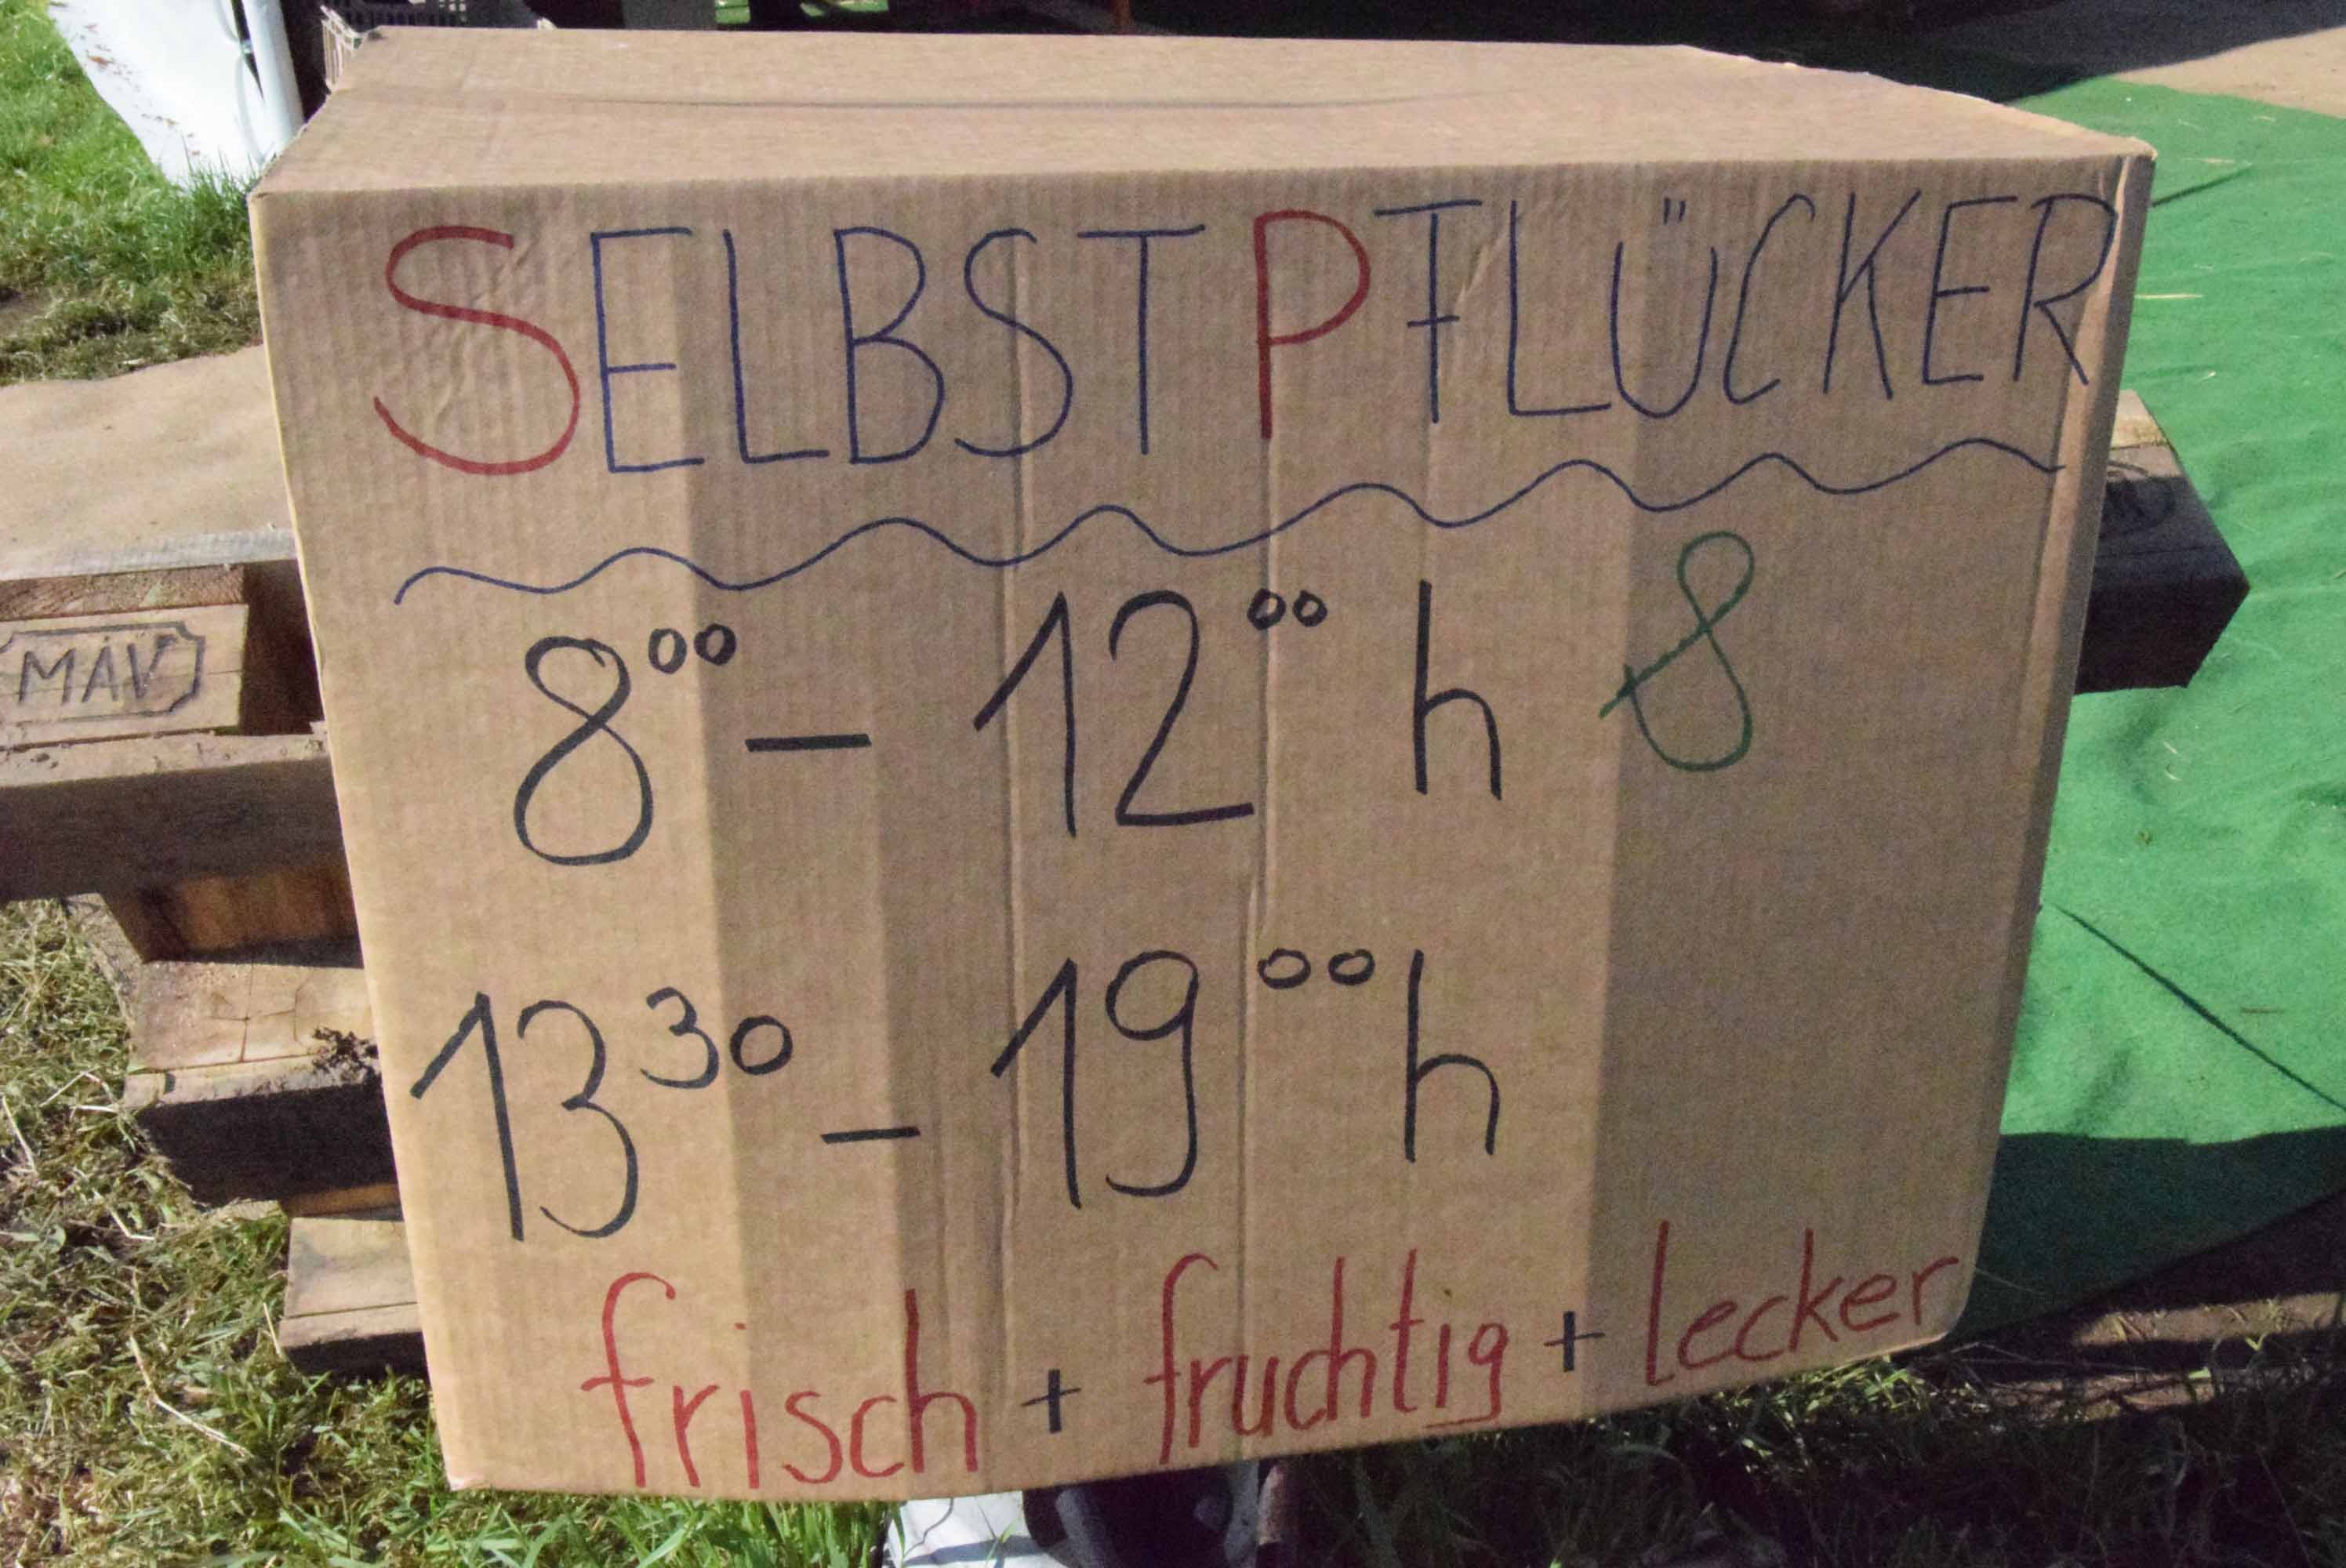 SELBSTPFLÜCKER
8⁰⁰ – 12⁰⁰ h &
13³⁰ – 19⁰⁰ h
frisch + fruchtig + lecker
MÁV